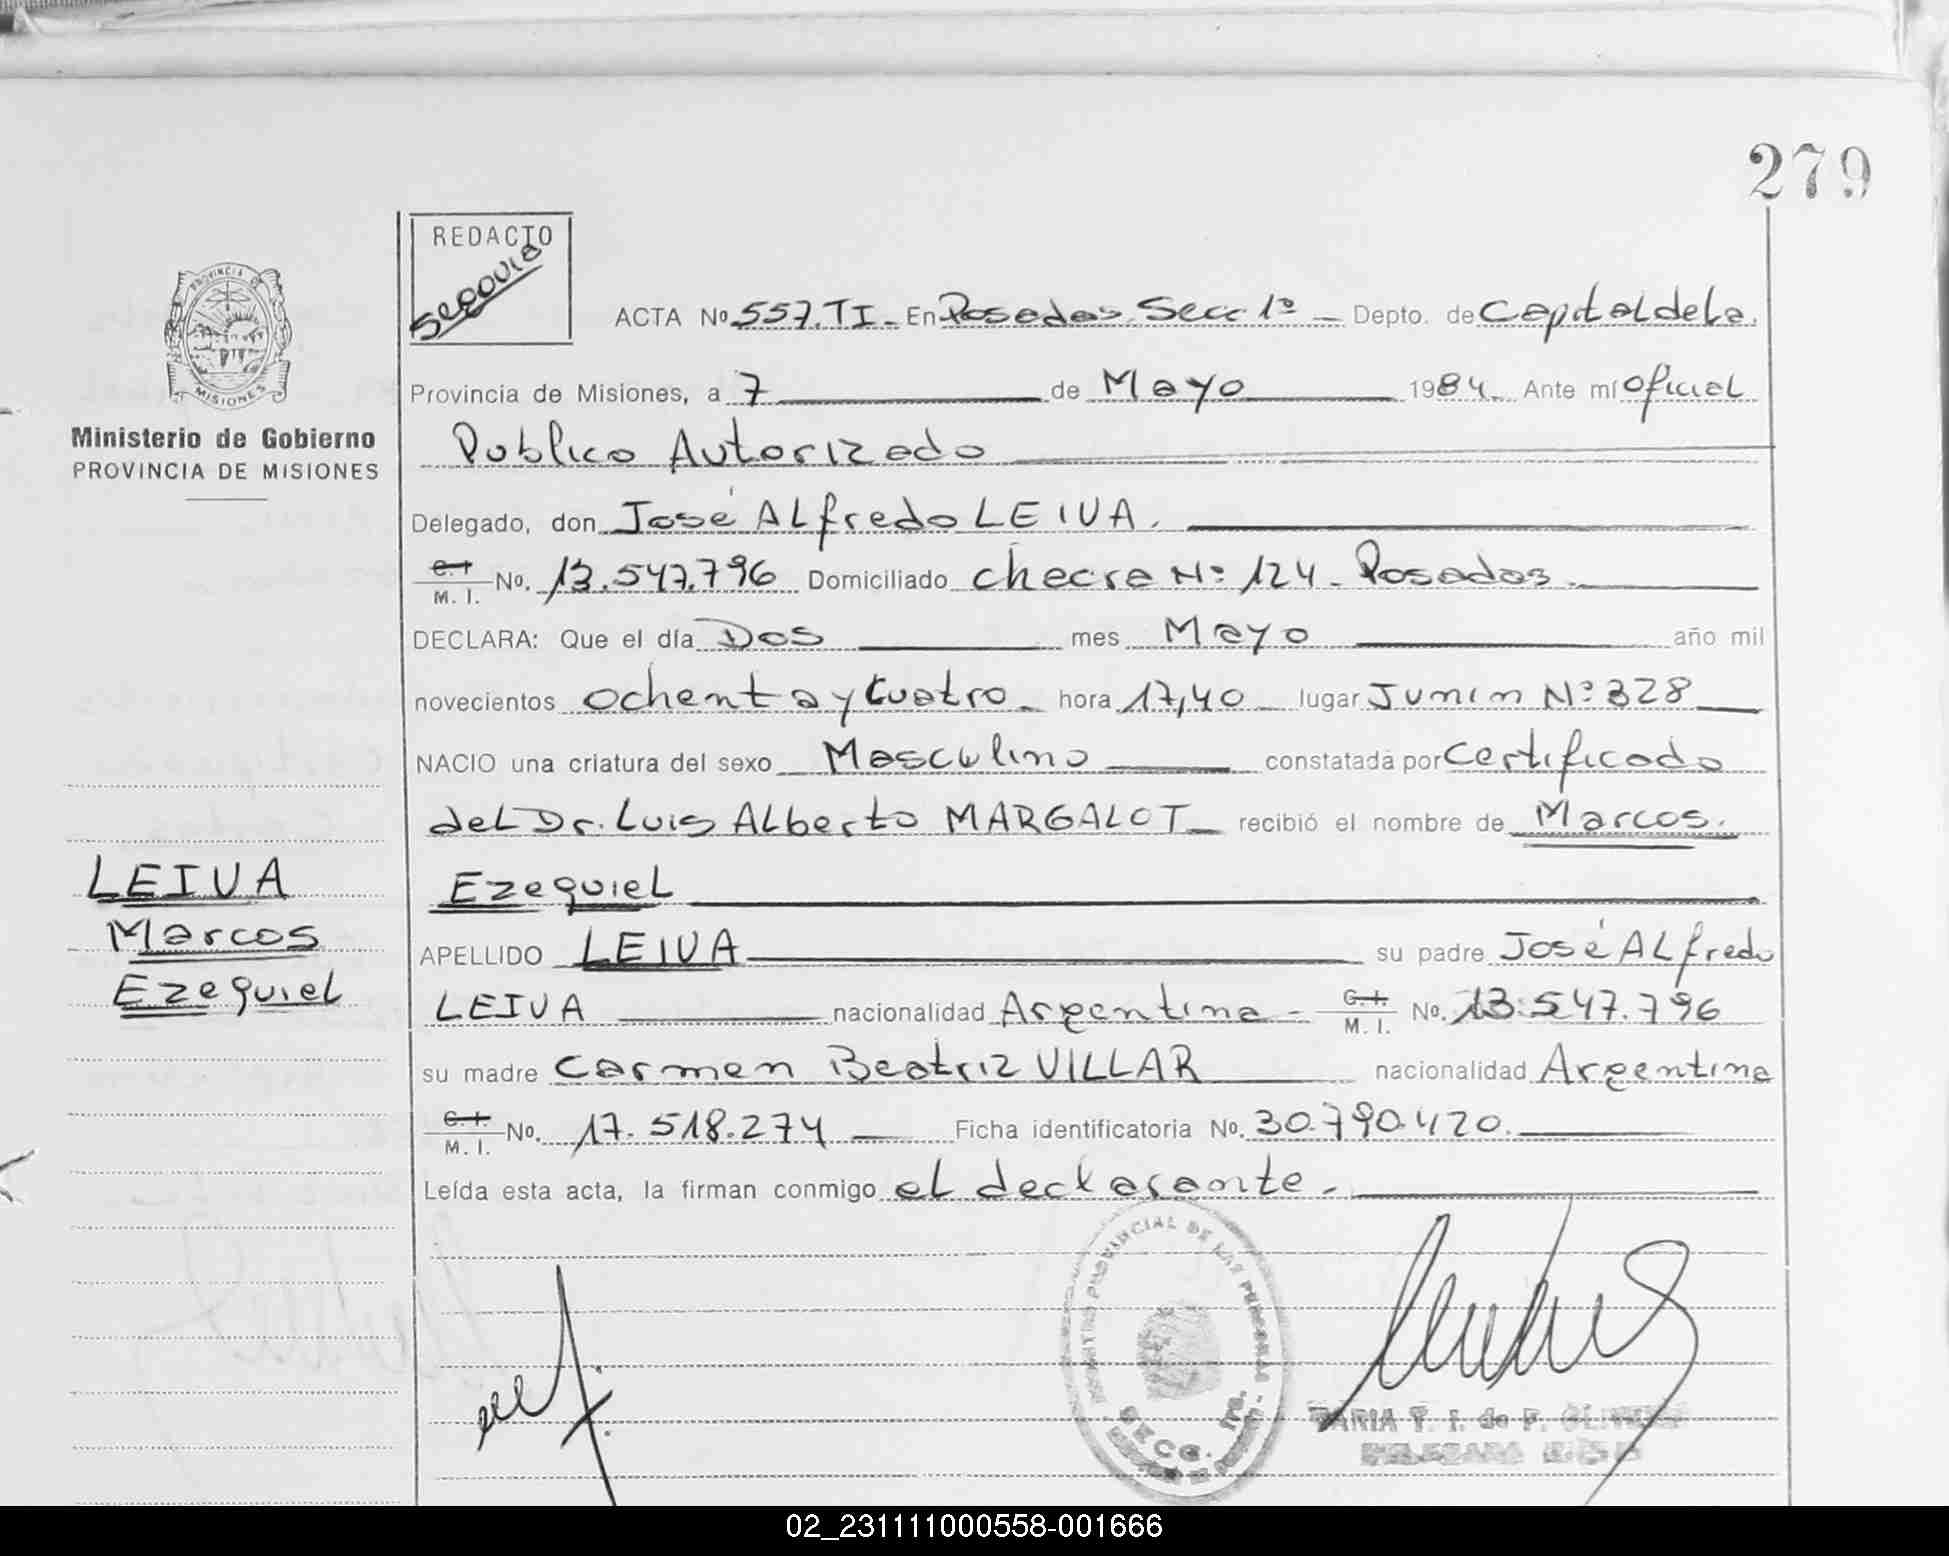 279
REDACTO
Segovia
ACTA Nº 557.TI. En Posadas. Secc 1º - Depto. de Capital de la.
PROVINCIA DE
MISIONES
Provincia de Misiones, a 7 de Mayo 1984. Ante mí oficial
Ministerio de Gobierno
PROVINCIA DE MISIONES
Publico Autorizado
Delegado, don José Alfredo LEIVA.
C.I M. I. No. 13.547.796 Domiciliado checra Nº 124 - Posadas.
DECLARA: Que el día Dos mes Mayo año mil
novecientos ochenta y cuatro - hora 17,40 lugar Junin Nº 328
NACIO una criatura del sexo Masculino constatada por Certificado
del Dr. Luis Alberto MARGALOT recibió el nombre de Marcos.
Ezequiel
LEIVA
Marcos
Ezequiel
APELLIDO LEIVA su padre José Alfredo
LEIVA nacionalidad Argentina - C.I. M. I. No. 13.547.796
su madre Carmen Beatriz VILLAR nacionalidad Argentina
C.I. M. I. No. 17.518.274 Ficha identificatoria No. 30.790.420.
Leída esta acta, la firman conmigo el declarante.-
REGISTRO PROVINCIAL DE LAS PERSONAS
SECC.
02_231111000558-001666